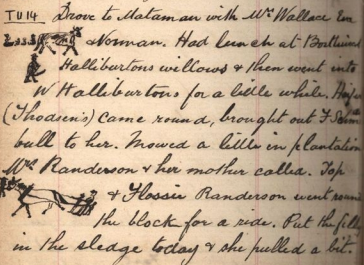 TU14 Drove to Matamau with Mrs Wallace Em
& Norman. Had lunch at
Halliburtons willows & then went into
W Halliburtons for a little while.
(Thodsen's) came round, brought out
bull to her. Mowed a little in plantation
Mrs Randerson & her mother called. Top
& Flossie Randerson went round
the block for a ride. Put the filly
in the sledge today & she pulled a bit.